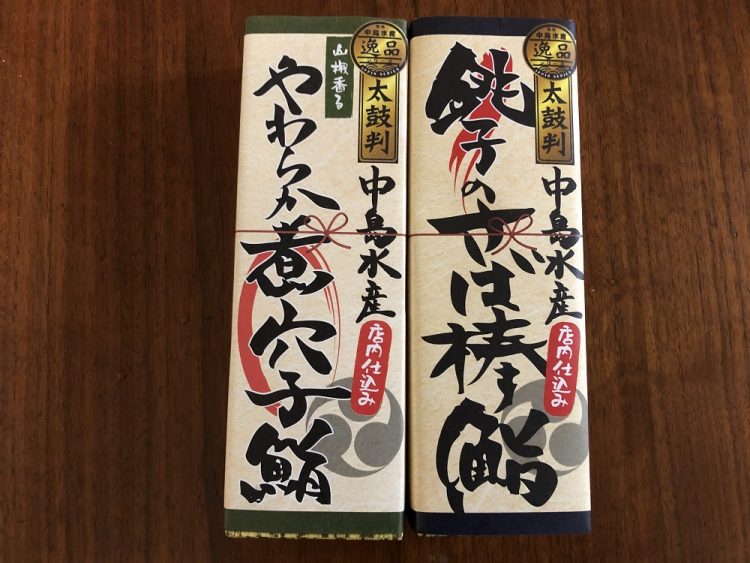 中島水産
逸品
太鼓判
中島水産
店内仕込み
銚子のさば棒鮨
中島水産
逸品
太鼓判
中島水産
店内仕込み
山椒香る
やわらか煮穴子鮨